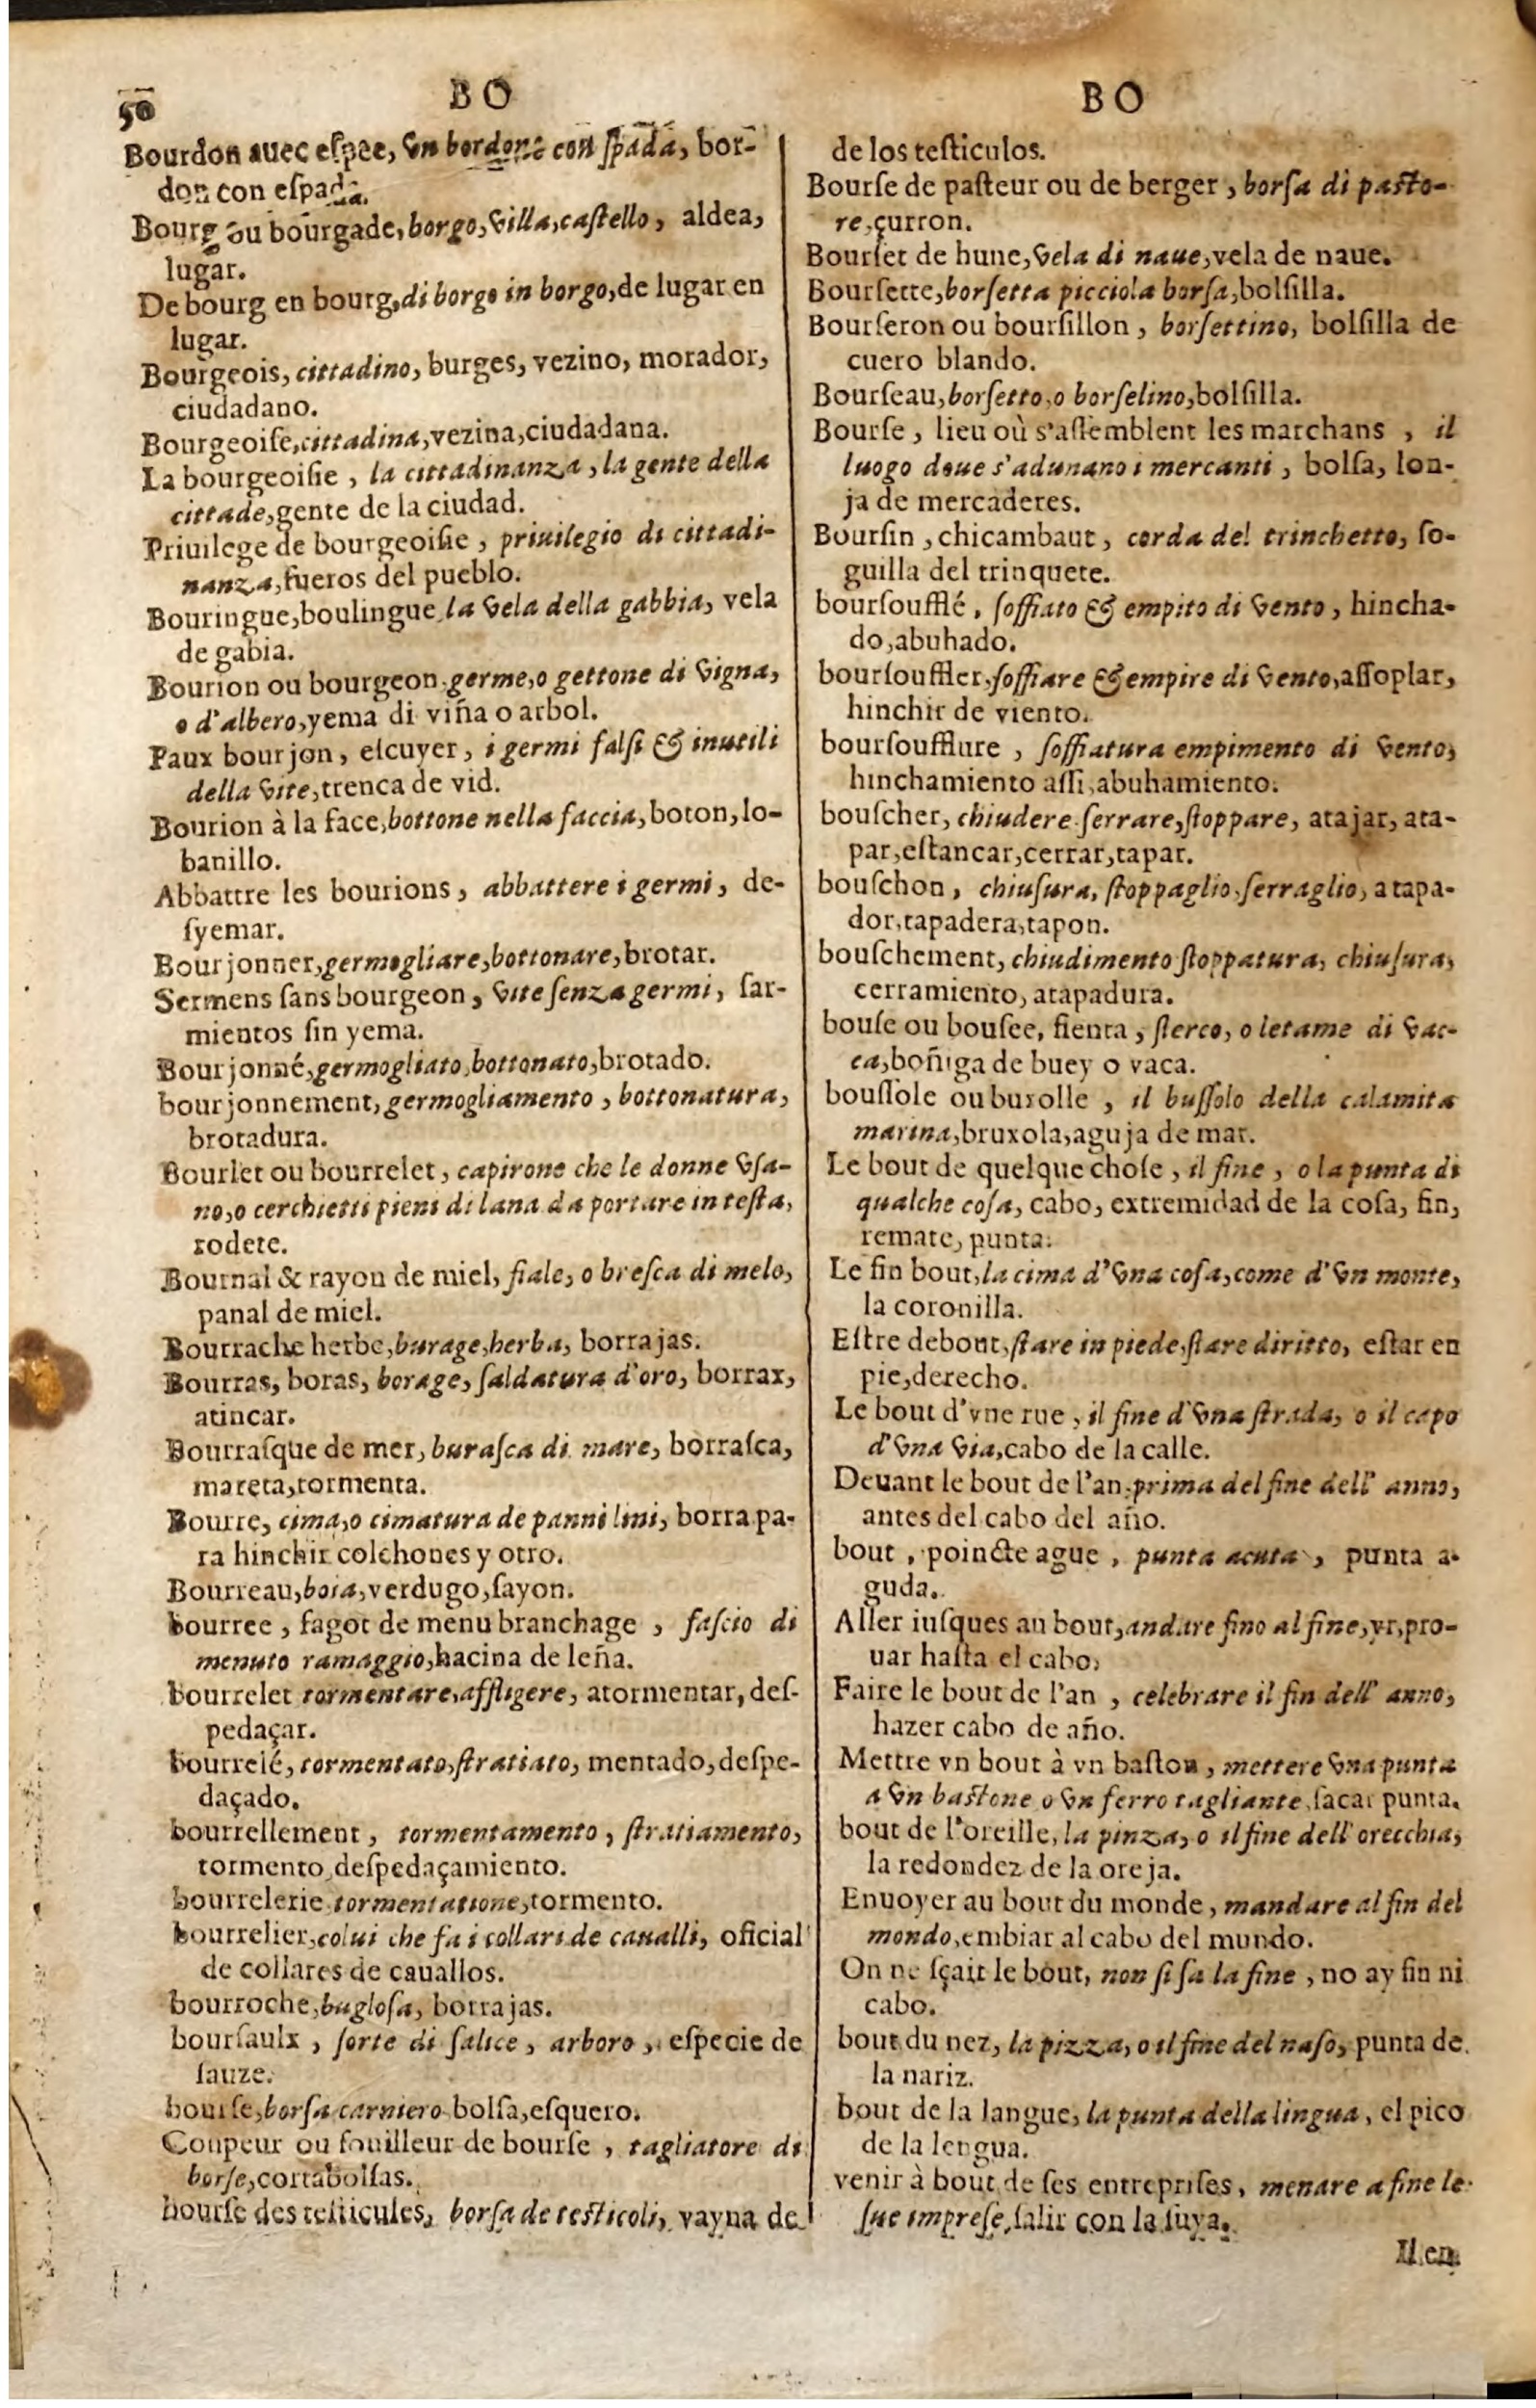 50
BO
Bourdon auec eſpee, vn bordone con ſpada, bor-
don con eſpada.
Bourg ou bourgade, borgo, villa, caſtello, aldea,
lugar.
De bourg en bourg, di borgo in borgo, de lugar en
lugar.
Bourgeois, cittadino, burges, vezino, morador,
ciudadano.
Bourgeoiſe, cittadina, vezina, ciudadana.
La bourgeoiſie, la cittadinanza, la gente della
cittade, gente de la ciudad.
Priuilege de bourgeoiſie, priuilegio di cittadi-
nanza, fueros del pueblo.
Bouringue, boulingue, la vela della gabbia, vela
de gabia.
Bourion ou bourgeon, germe, o gettone di vigna,
o d'albero, yema di viña o arbol.
Faux bourjon, eſcuyer, i germi falſi & inutili
della vite, trenca de vid.
Bourion à la face, bottone nella faccia, boton, lo-
banillo.
Abbattre les bourions, abbattere i germi, de-
ſyemar.
Bourjonner, germogliare, bottonare, brotar.
Sermens ſans bourgeon, vite ſenza germi, ſar-
mientos ſin yema.
Bourjonné, germogliato, bottonato, brotado.
bourjonnement, germogliamento, bottonatura,
brotadura.
Bourlet ou bourrelet, capirone che le donne vſa-
no, o cerchietti pieni di lana da portare in teſta,
rodete.
Bournal & rayon de miel, fiale, o breſca di melo,
panal de miel.
Bourrache herbe, burage, herba, borrajas.
Bourras, boras, borage, ſaldatura d'oro, borrax,
atincar.
Bourraſque de mer, buraſca di mare, borraſca,
mareta, tormenta.
Bourre, cima, o cimatura de panni lini, borra pa-
ra hinchir colchones y otro.
Bourreau, boia, verdugo, ſayon.
bourree, fagot de menu branchage, faſcio di
menuto ramaggio, hacina de leña.
bourreler tormentare, affligere, atormentar, deſ-
pedaçar.
bourrelé, tormentato, ſtratiato, mentado, deſpe-
daçado.
bourrellement, tormentamento, ſtratiamento,
tormento, deſpedaçamiento.
bourrelerie, tormentatione, tormento.
bourrelier, colui che fa i collari de caualli, oficial
de collares de cauallos.
bourroche, bugloſa, borrajas.
bourſaulx, ſorte di ſalice, arboro, eſpecie de
ſauze.
bourſe, borſa carniero bolſa, eſquero.
Coupeur ou fouilleur de bourſe, tagliatore di
borſe, cortabolſas.
bourſe des teſticules, borſa de teſticoli, vayna de
BO
de los teſticulos.
Bourſe de paſteur ou de berger, borſa di paſto-
re, çurron.
Bourſet de hune, vela di naue, vela de naue.
Bourſette, borſetta picciola borſa, bolſilla.
Bourſeron ou bourſillon, borſettino, bolſilla de
cuero blando.
Bourſeau, borſetto, o borſelino, bolſilla.
Bourſe, lieu où s'aſſemblent les marchans, il
luogo doue s'adunano i mercanti, bolſa, lon-
ja de mercaderes.
Bourſin, chicambaut, corda del trinchetto, ſo-
guilla del trinquete.
bourſoufflé, ſoffiato & empito di vento, hincha-
do, abuhado.
bourſouffler, ſoffiare & empire di vento, aſſoplar,
hinchir de viento.
bourſoufflure, ſoffiatura empimento di vento,
hinchamiento aſſi, abuhamiento.
bouſcher, chiudere ſerrare, ſtoppare, atajar, ata-
par, eſtancar, cerrar, tapar.
bouſchon, chiuſura, ſtoppaglio, ſerraglio, atapa-
dor, tapadera, tapon.
bouſchement, chiudimento ſtoppatura, chiuſura,
cerramiento, atapadura.
bouſe ou bouſee, fienta, ſterco, o letame di vac-
ca, boñiga de buey o vaca.
bouſſole ou buxolle, il buſſolo della calamita
marina, bruxola, aguja de mar.
Le bout de quelque choſe, il fine, o la punta di
qualche coſa, cabo, extremidad de la coſa, fin,
remate, punta.
Le fin bout, la cima d'vna coſa, come d'vn monte,
la coronilla.
Eſtre debout, ſtare in piede, ſtare diritto, eſtar en
pie, derecho.
Le bout d'vne rue, il fine d'vna ſtrada, o il capo
d'vna via, cabo de la calle.
Deuant le bout de l'an, prima del fine dell' anno,
antes del cabo del año.
bout, poincte ague, punta acuta, punta a-
guda.
Aller iuſques au bout, andare fino al fine, yr, pro-
uar haſta el cabo,
Faire le bout de l'an, celebrare il fin dell' anno,
hazer cabo de año.
Mettre vn bout à vn baſton, mettere vna punta
a vn baſtone o vn ferro tagliante, ſacar punta.
bout de l'oreille, la pinza, o il fine dell' orecchia,
la redondez de la oreja.
Enuoyer au bout du monde, mandare al fin del
mondo, embiar al cabo del mundo.
On ne ſçait le bout, non ſi ſa la fine, no ay fin ni
cabo.
bout du nez, la pizza, o il fine del naſo, punta de
la nariz.
bout de la langue, la punta della lingua, el pico
de la lengua.
venir à bout de ſes entrepriſes, menare a fine le
ſue impreſe, ſalir con la ſuya.
Il en